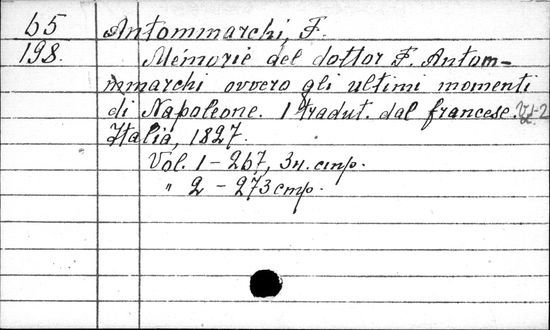 65
198.
Antommarchi, F.
Mémorie del dottor F. Antom-
mmarchi ovvero gli ultimi momenti
di Napoleone. 1 tradut. dal francese. V.1-2
Italia, 1827.
Vol. 1 – 267, 3н. стр.
" 2 – 273 стр.